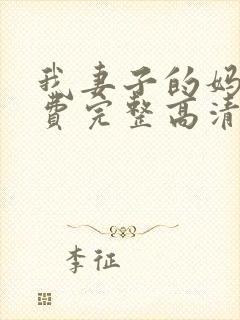 我妻子的妈
费完整高清
李征